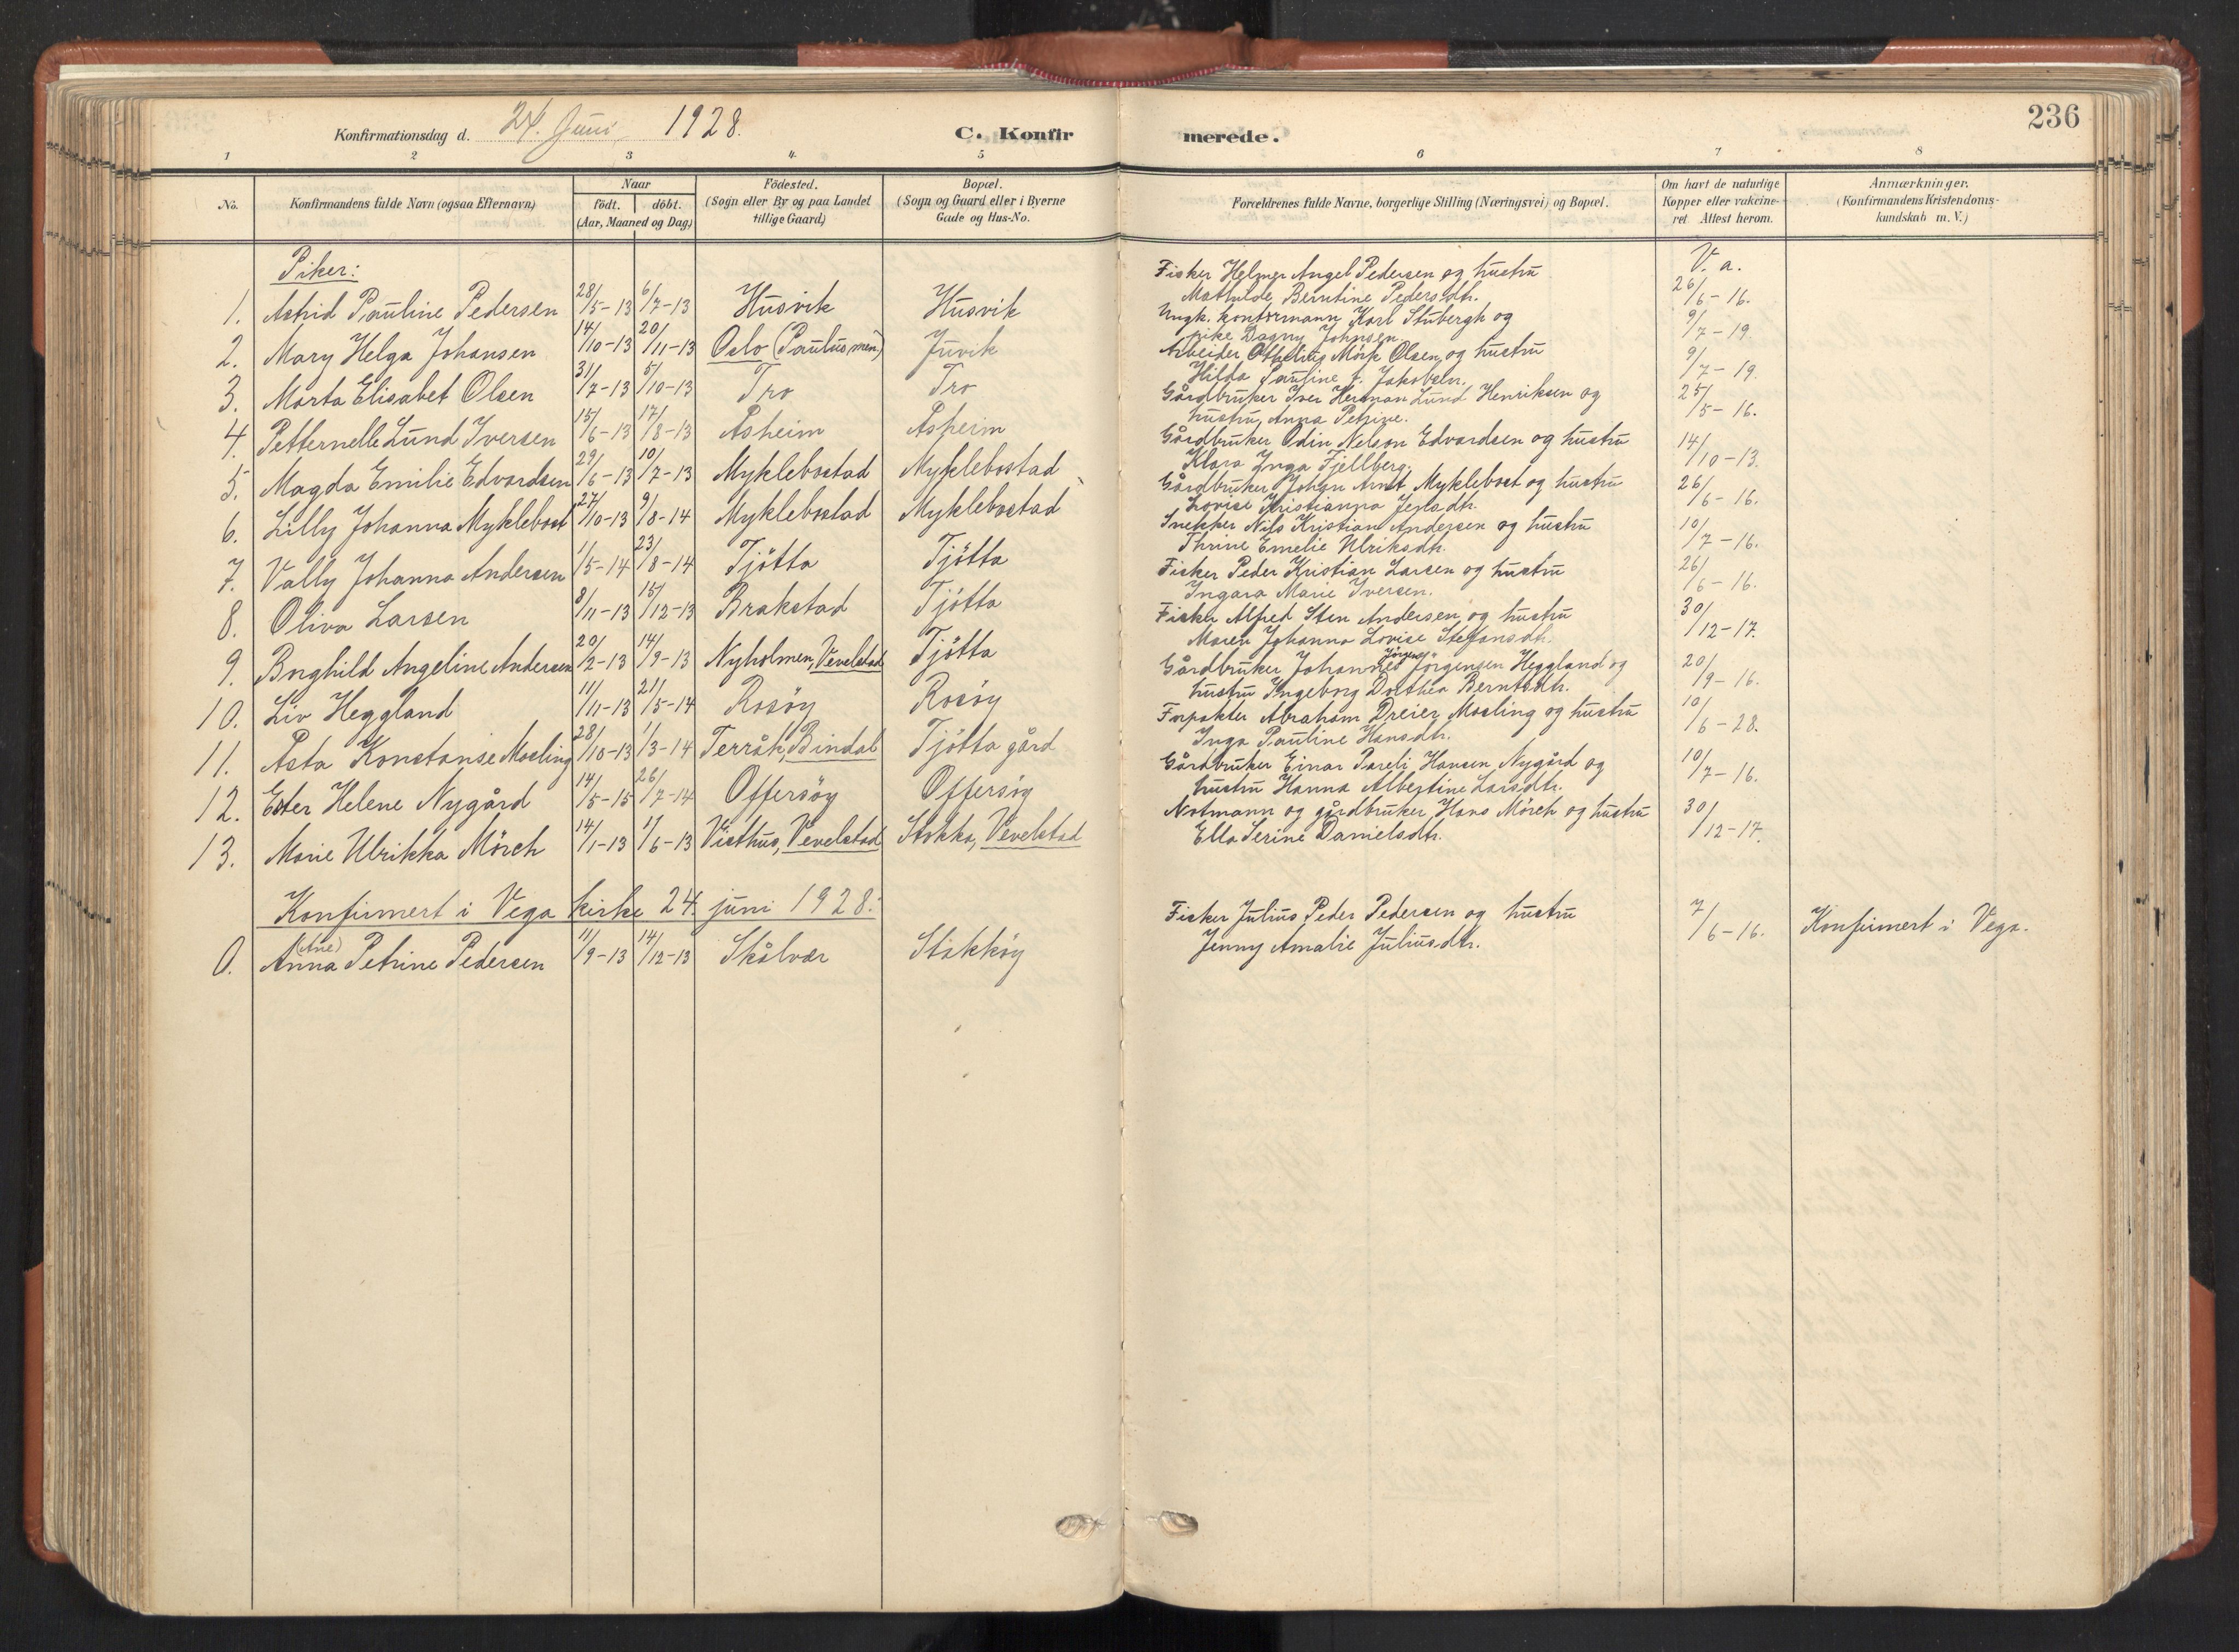 236
Konfirmationsdag d. 24. Juni 1928.
C. Konfirmerede.
1 2 3 4 5 6 7 8
No. Konfirmandens fulde Navn (ogsaa Efternavn) Naar födt. döbt. (Aar, Maaned og Dag) Födested. (Sogn eller By og paa Landet tillige Gaard) Bopæl. (Sogn og Gaard eller i Byerne Gade og Hus-No. Forældrenes fulde Navne, borgerlige Stilling (Næringsvei) og Bopæl. Om havt de naturlige Kopper eller vakcineret. Attest herom. Anmærkninger. (Konfirmandens Kristendomskundskab m. V.)
Piker: V. a.
1. Astrid Pauline Pedersen 28/5-13 6/7-13 Husvik Husvik Fisker Helmer Angel Pedersen og hustru Mathilde Berntine Pedersdtr. 26/6-16.
2. Mary Helga Johansen 14/10-13 20/11-13 Oslo (Paulus, men) Juvik Ungk. kontormann Karl Stubergh og pike Dagny Johnsen 9/7-19
3. Marta Elisabet Olsen 31/7-13 5/10-13 Tro Tro Arbeider Othelius Mörk Olsen og hustru Hilda Pauline f. Jakobsen. 9/7-19.
4. Petternelle Lund Iversen 15/6-13 17/8-13 Asheim Asheim Gårdbruker Iver Herman Lund Henriksen og hustru Anna Petrine. 25/5-16.
5. Magda Emilie Edvardsen 29/6-13 10/7-13 Myklebostad Myklebostad Gårdbruker Odin Nelson Edvardsen og hustru Klara Inga Fjellberg. 14/10-13.
6. Lilly Johanna Myklebost 27/10-13 9/8-14 Myklebostad Myklebostad Gårdbruker Johan Arnt Myklebost og hustru Lovise Kristianna Jensdtr. 26/6-16.
7. Vally Johanna Andersen 1/5-14 23/8-14 Tjötta Tjötta Snekker Nils Kristian Andersen og hustru Thrine Emelie Ulriksdtr. 10/7-16.
8. Oliva Larsen 8/11-13 15/12-13 Brakstad Tjötta Fisker Peder Kristian Larsen og hustru Ingara Marie Iversen. 26/6-16.
9. Borghild Angeline Andersen 20/2-13 14/9-13 Nyholmen, Vevelstad Tjötta Fisker Alfred Sten Andersen og hustru Maren Johanna Lovise Stefansdtr. 30/12-17.
10. Liv Heggland 11/11-13 21/5-14 Rosöy Rosöy Gårdbruker Johannes Jörgen Jörgensen Heggland og hustru Ingeborg Dorthea Berntsdtr. 20/9-16.
11. Asta Konstanse Mosling 28/10-13 1/3-14 Terråk, Bindal Tjötta gård Forpakter Abraham Dreier Mosling og hustru Inga Pauline Hansdtr. 10/6-28.
12. Ester Helene Nygård 14/5-15 26/7-14 Offersöy Offersöy Gårdbruker Einar Pareli Hansen Nygård og hustru Hanna Albertine Larsdtr. 10/7-16.
13. Marie Ulrikka Mörch 14/1-13 1/6-13 Visthus, Vevelstad Stokka, Vevelstad Notmann og gårdbruker Hans Mörch og hustru Ella Serine Danielsdtr. 30/12-17.
Konfirmert i Vega kirke 24. juni 1928:
0. Anna (Ane) Petrine Pedersen 11/9-13 14/12-13 Skålvær Stokköy Fisker Julius Peder Pedersen og hustru Jenny Amalie Juliusdtr. 7/6-16. Konfirmert i Vega.